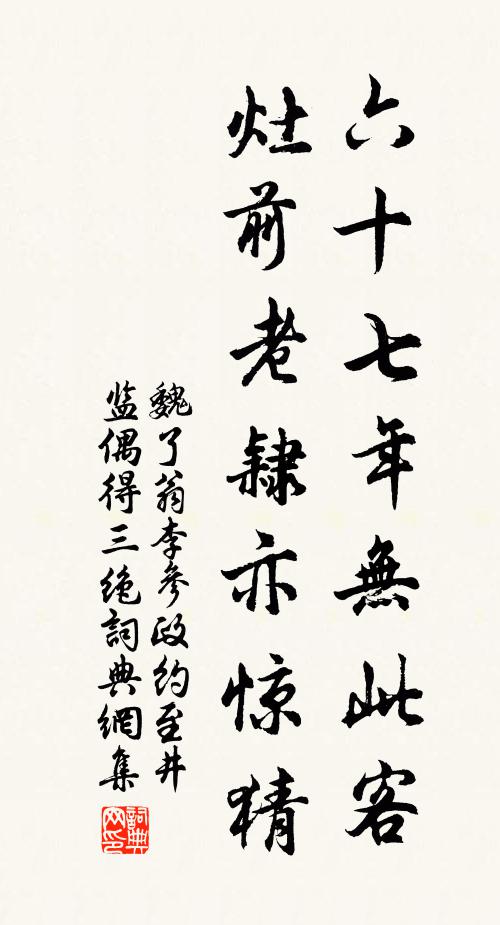 六十七年無此客
灶前老隸亦惊猜
魏了翁李參政约至井
监偶得三绝詞典網集
詞典網印